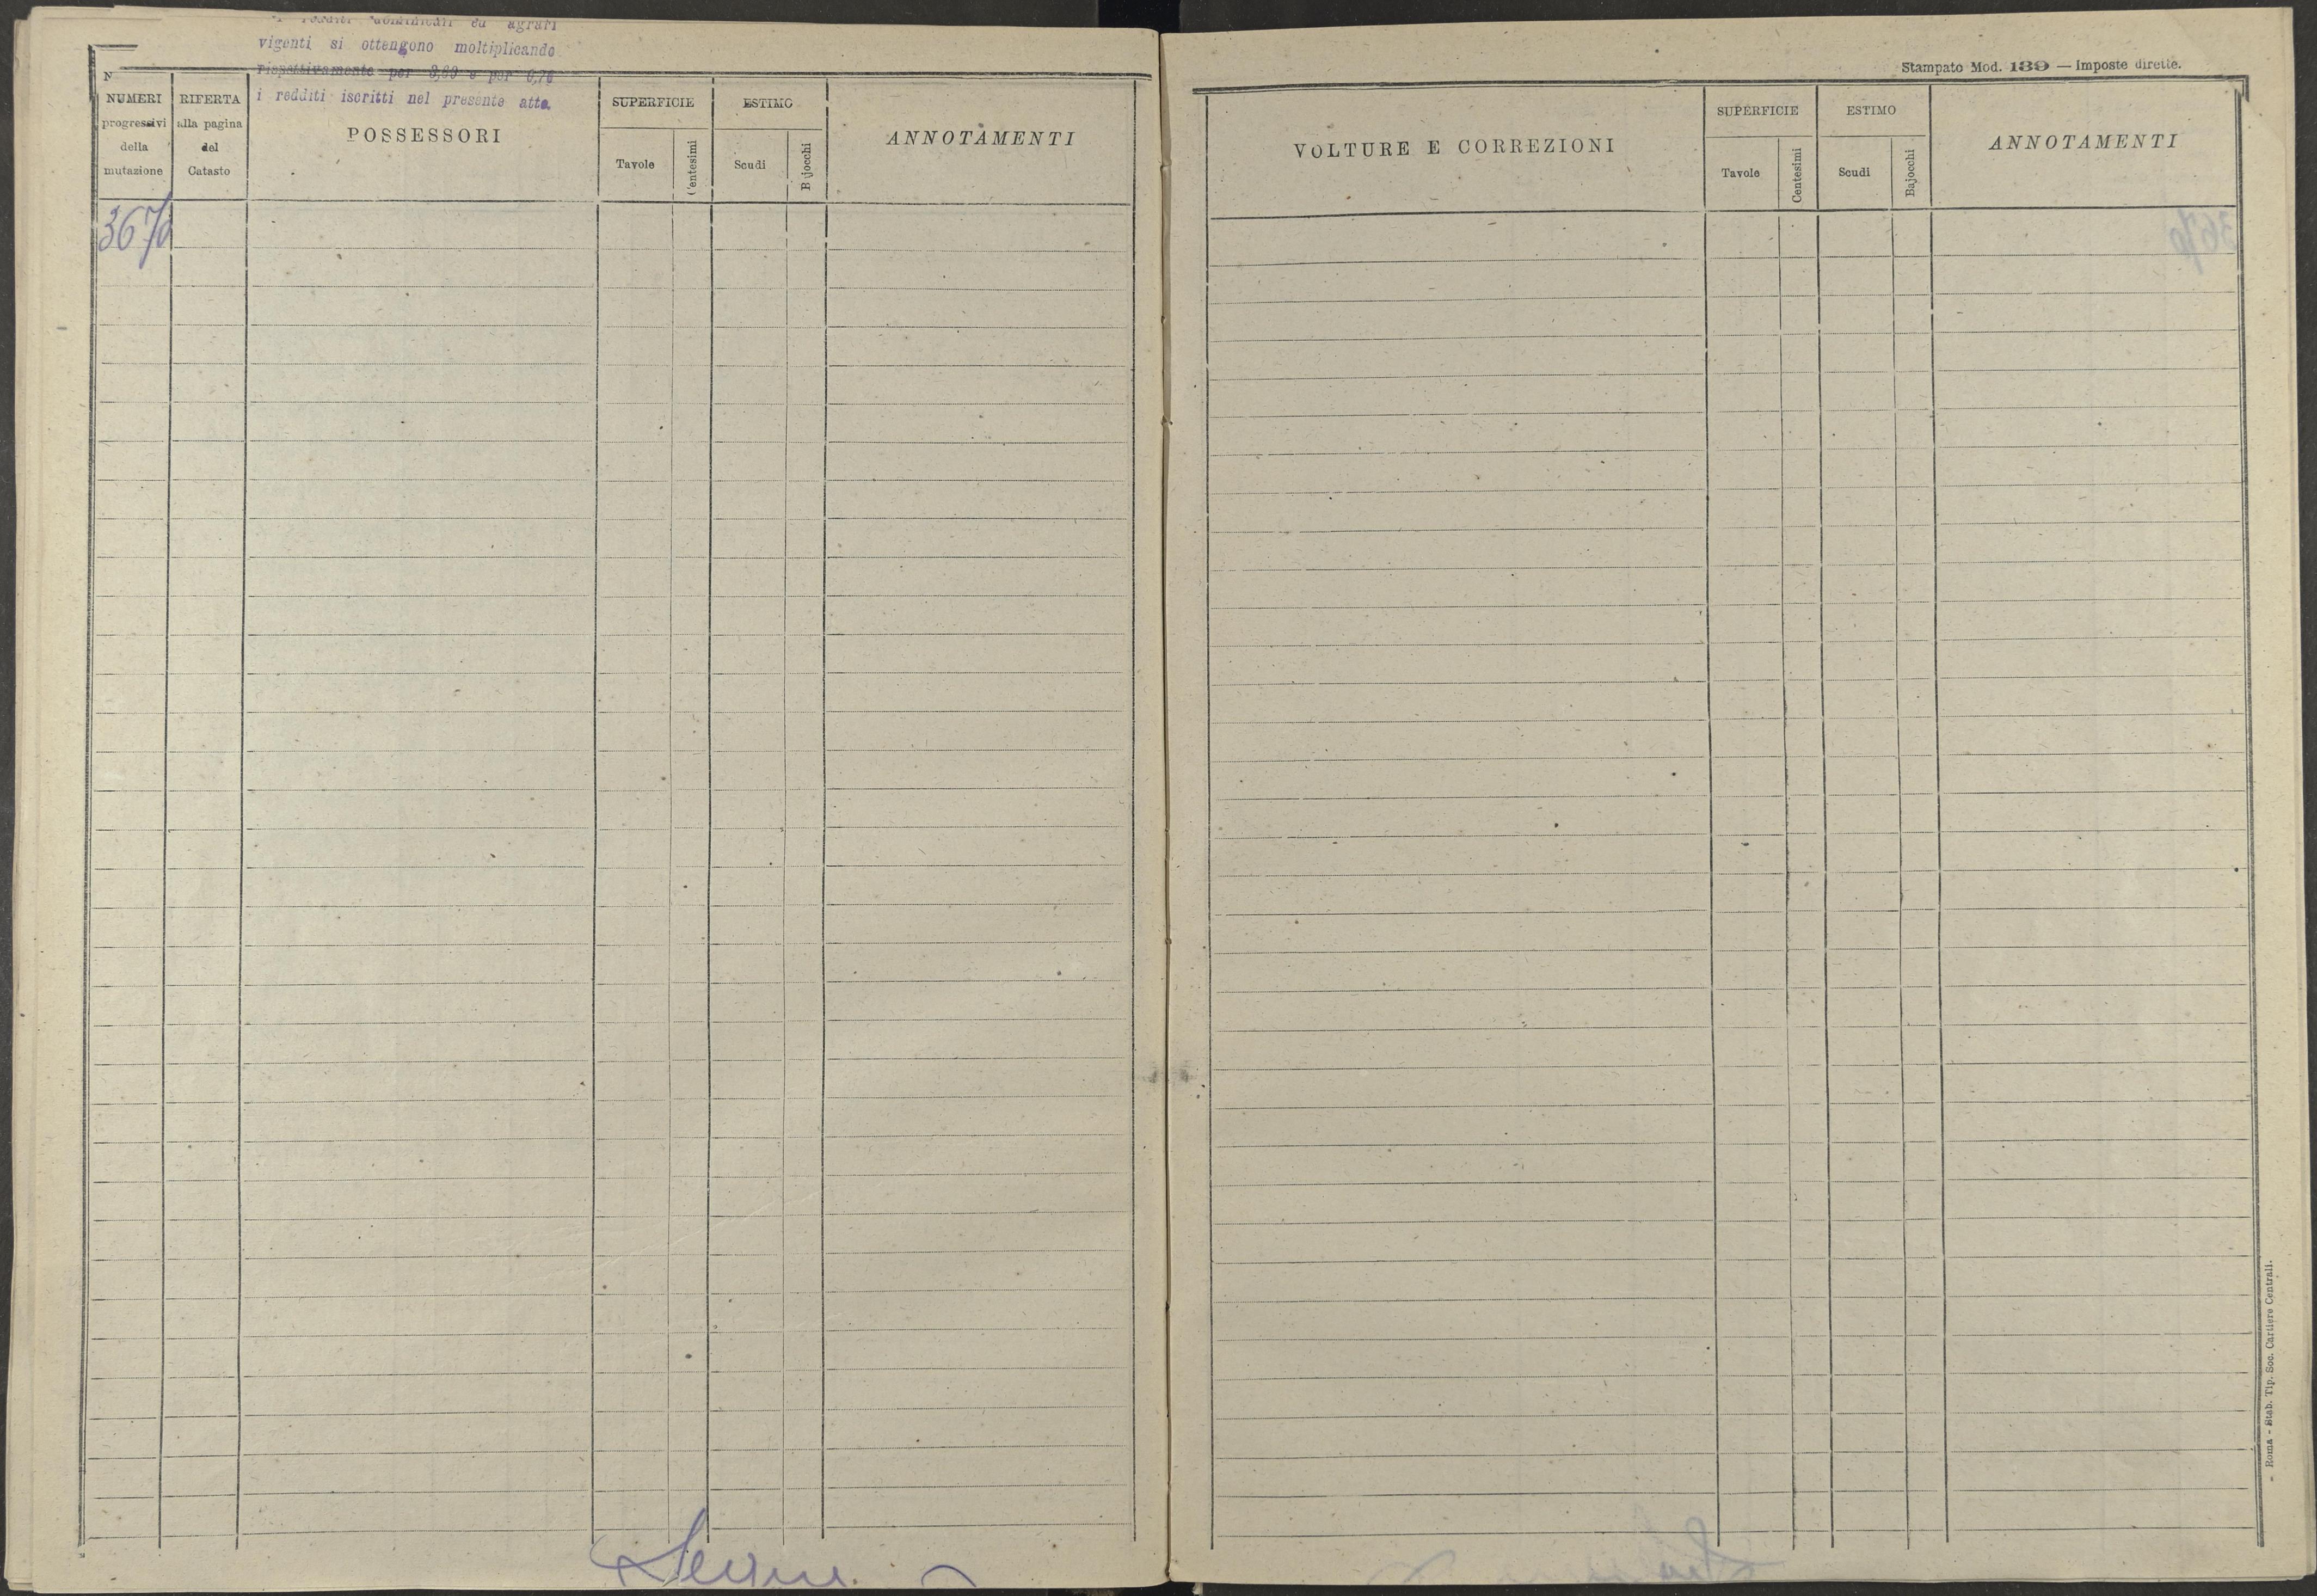 redditi dominicali ed agrari
vigenti si ottengono moltiplicando
rispettivamente per 3,60 e per
i redditi iscritti nel presente atto.
N
NUMERI
progressivi
della
mutazione
RIFERTA
alla pagina
del
Catasto
POSSESSORI
SUPERFICIE
Tavole
Centesimi
ESTIMO
Scudi
B jocchi
ANNOTAMENTI
3670
Stampato Mod. 139 — Imposte dirette.
VOLTURE E CORREZIONI
SUPERFICIE
Tavole
Centesimi
ESTIMO
Scudi
Bajocchi
ANNOTAMENTI
- Roma - Stab. Tip. Soc. Cartiere Centrali.